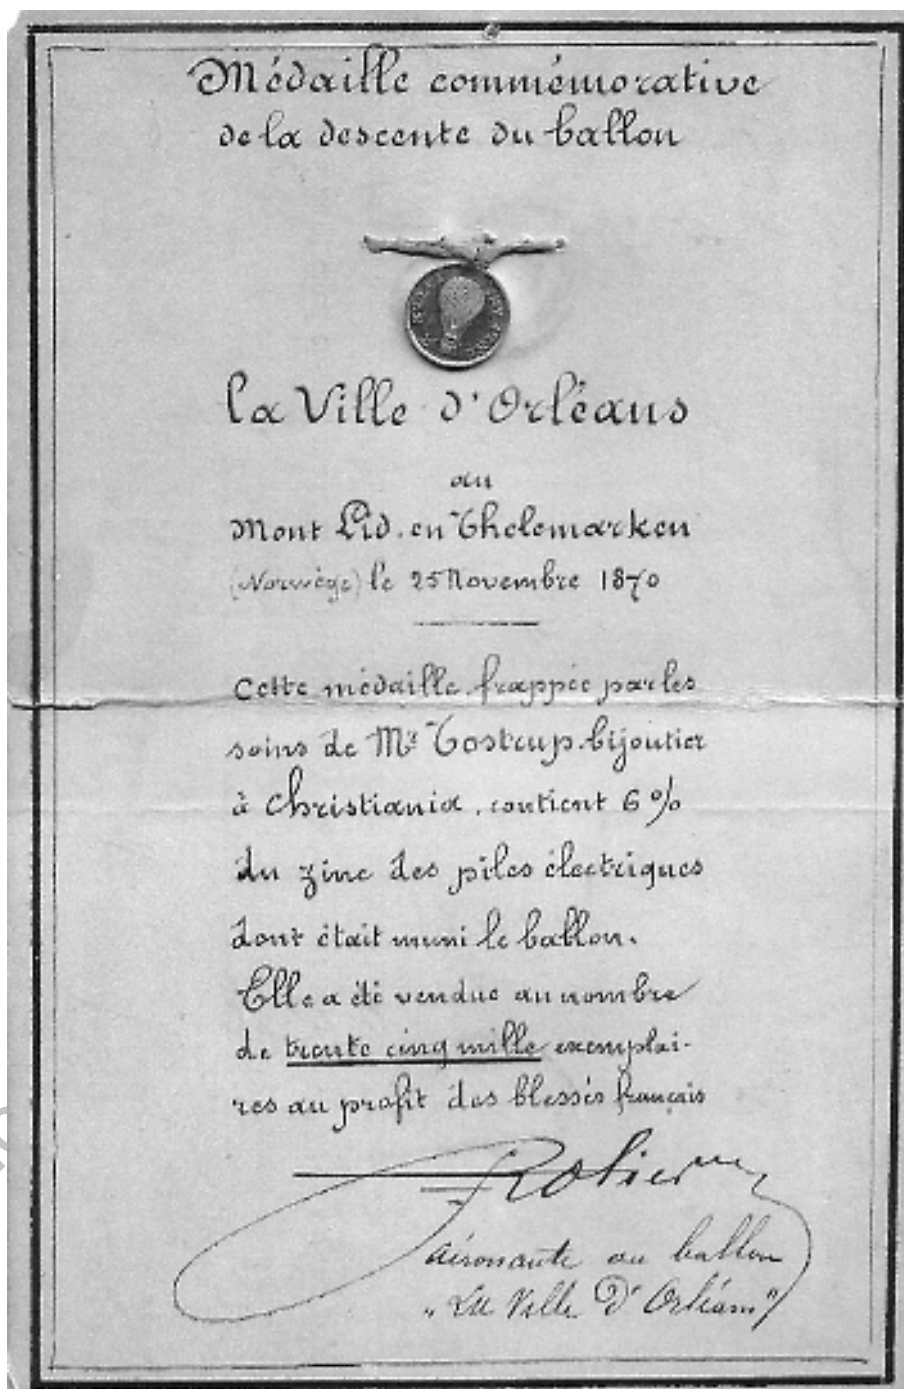 Médaille commémorative
de la descente du ballon
la Ville d'Orléans
au
Mont Lid. en Thelemarken
(Norwège) le 25 Novembre 1870
Cette médaille frappée par les
soins de Mr Tostrup. bijoutier
à Christiania. contient 6%
du zinc des piles électriques
dont était muni le ballon.
Elle a été vendue au nombre
de trente cinq mille exemplai-
res au profit des blessés français
Rolier
aéronaute au ballon
"La Ville D'Orléans"